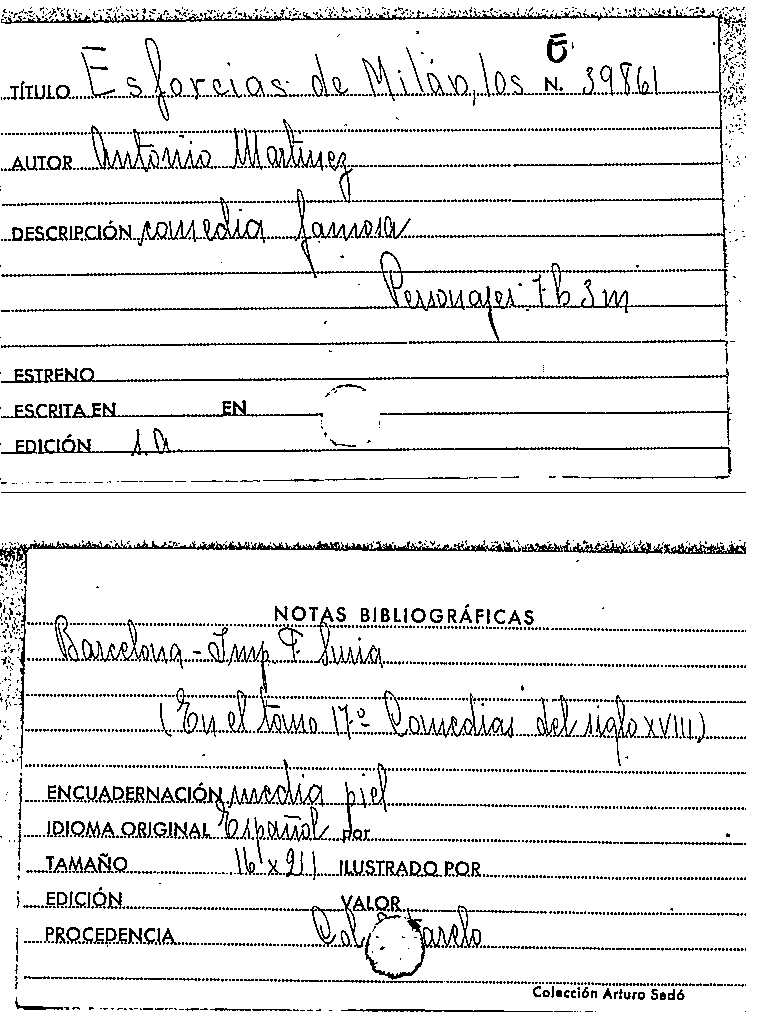 TÍTULO Esforcias de Milán, los N. 39861
AUTOR Antonio Martinez
DESCRIPCIÓN comedia famosa
Personajes 7 h 3 m
ESTRENO
ESCRITA EN EN
EDICIÓN s.a.
NOTAS BIBLIOGRÁFICAS
Barcelona - Imp F. Suria
(En el tomo 17º Comedias del siglo XVIII)
ENCUADERNACIÓN media piel
IDIOMA ORIGINAL Español por
TAMAÑO 16 x 211 ILUSTRADO POR
EDICIÓN VALOR
PROCEDENCIA Col.
Colección Arturo Sedó